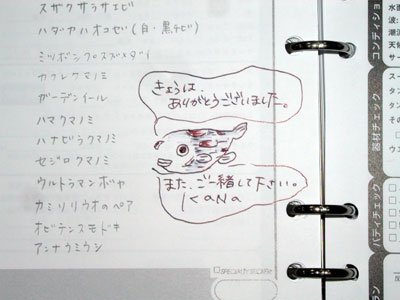 スザクサラサエビ
ハダカハオコゼ(白・黒チビ)
ミツボシクロスズメダイ
カクレクマノミ
ガーデンイール
ハマクマノミ
ハナビラクマノミ
セジロクマノミ
ウルトラマンボヤ
カミソリウオのペア
オビテンスモドキ
アンナウミウシ
きょうは、
ありがとうございました。
また、ご一緒して下さい。
KaNa
コンディショ
水面
波:
潮流
天候
サー
器材チェック
スー
タン
タン
その
バディチェック
ラン